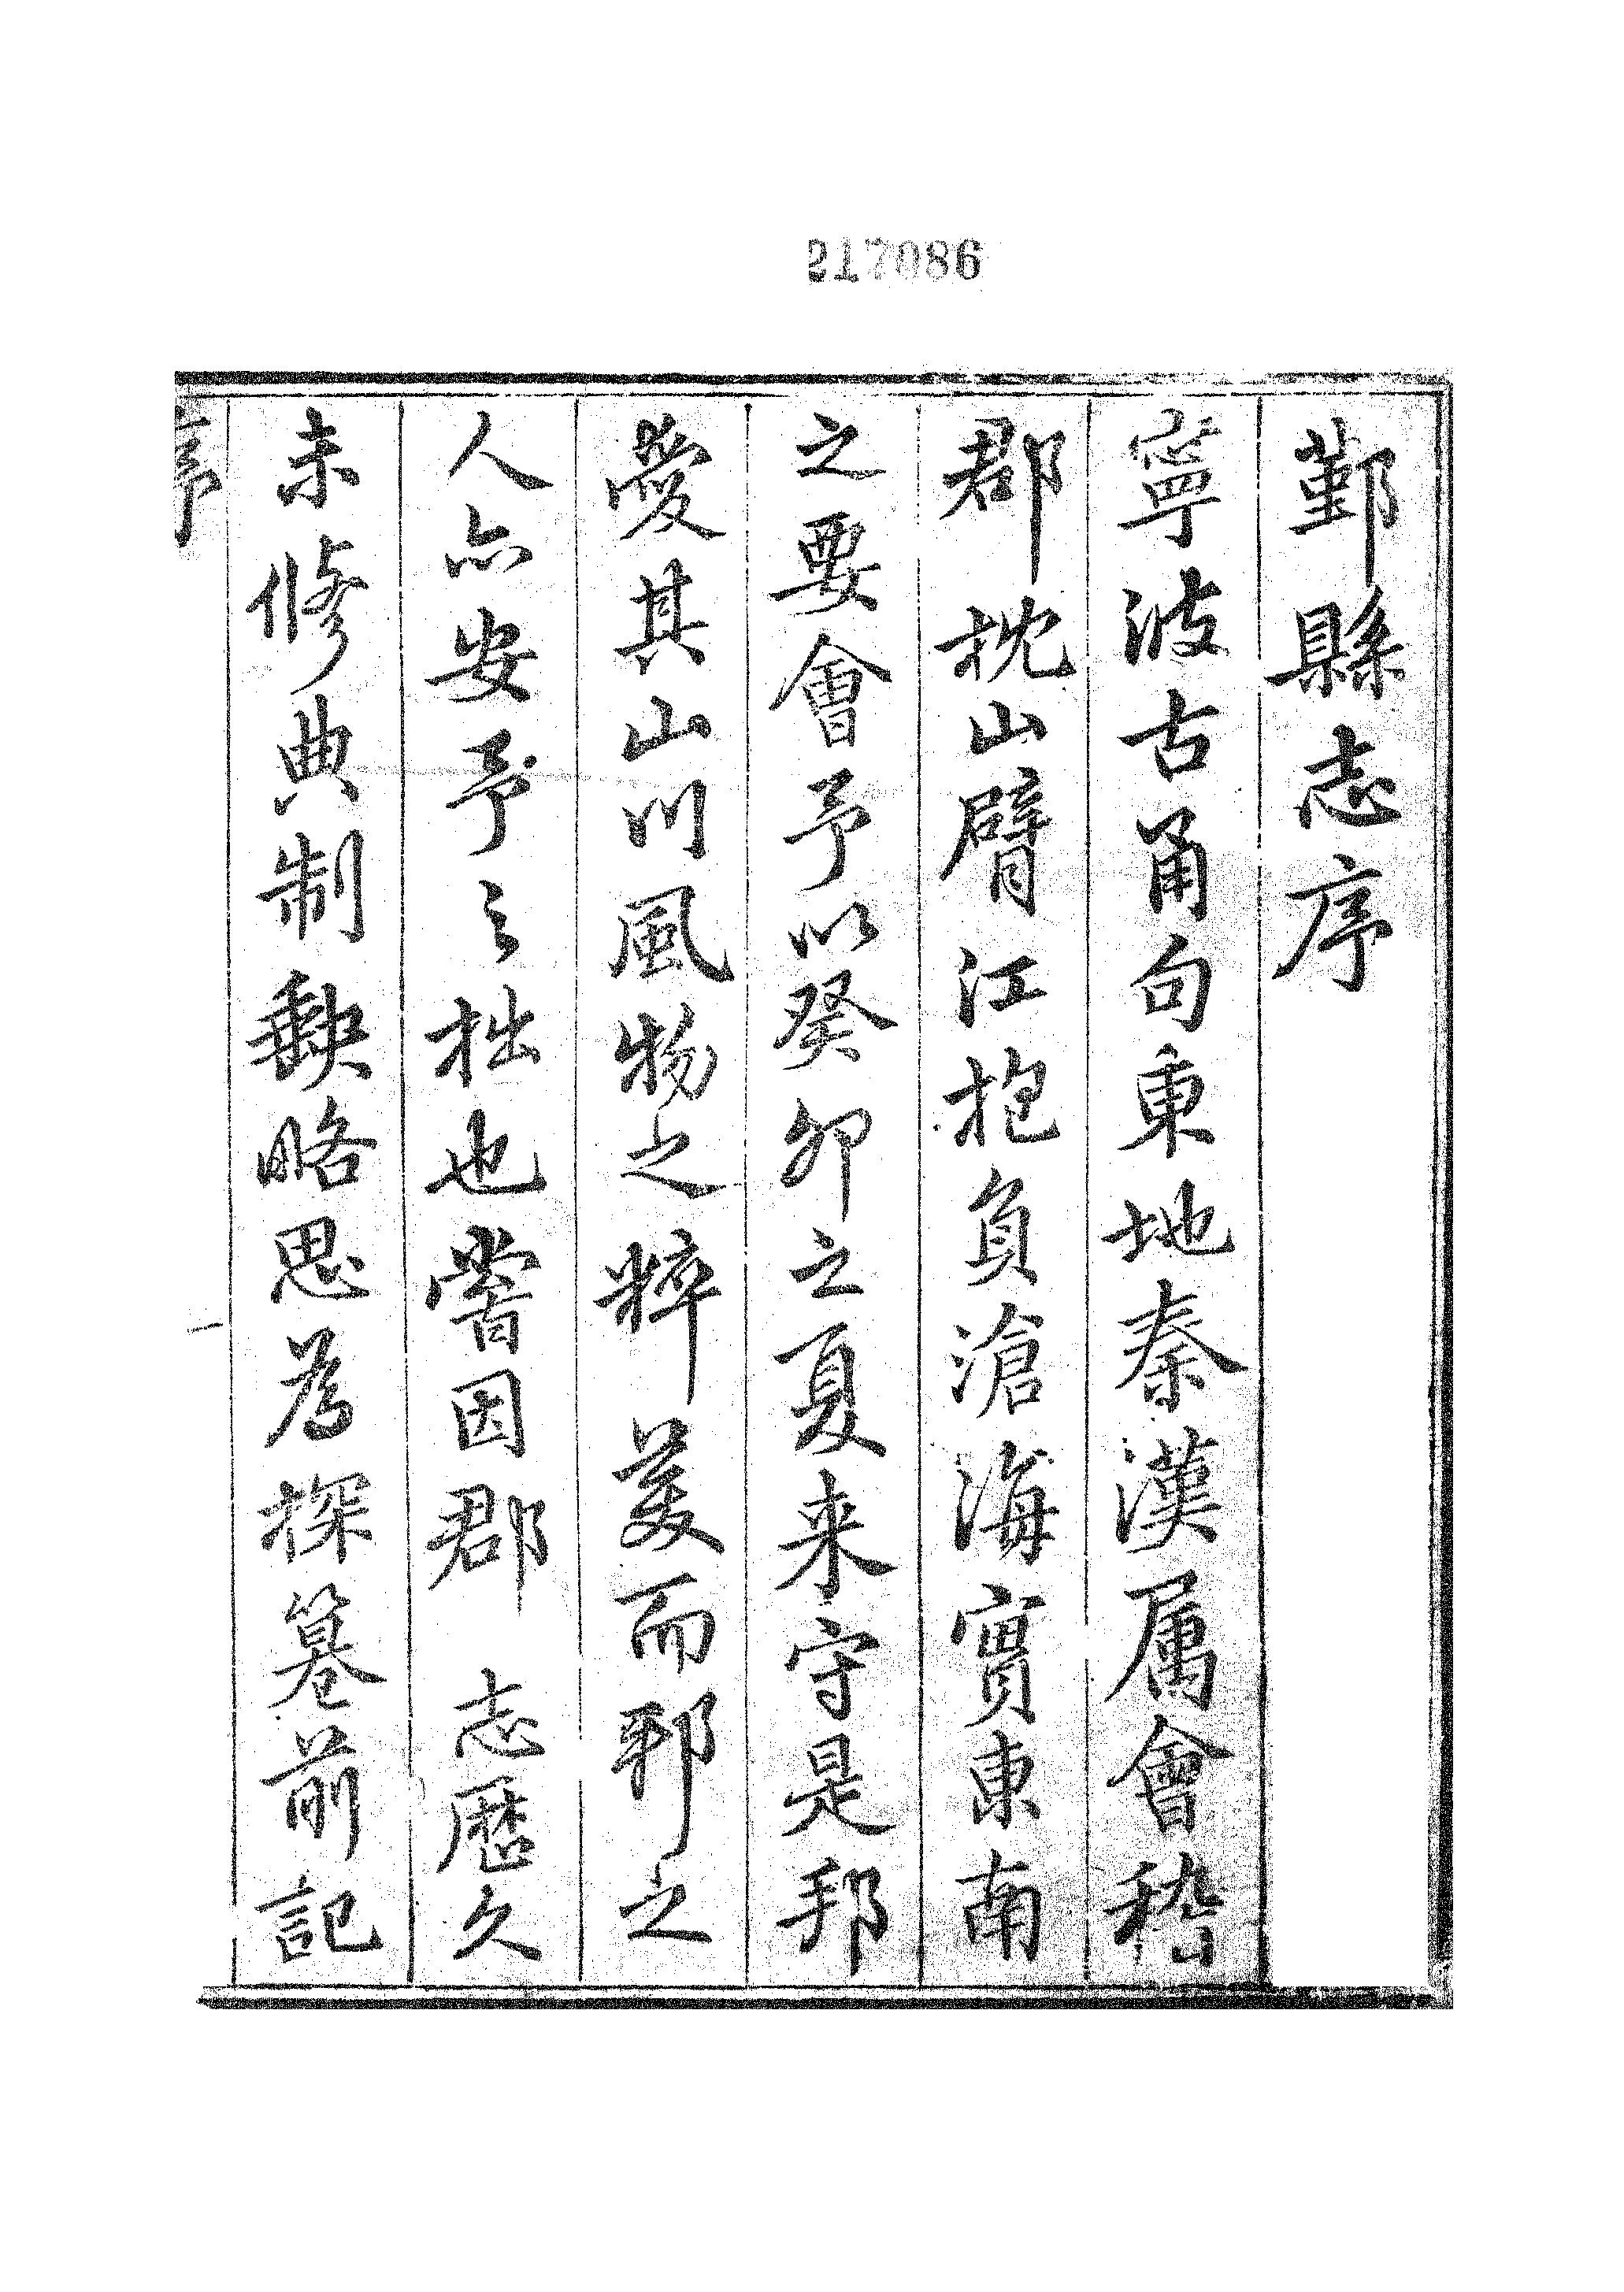 217086
鄞縣志序
寧波古甬句東地秦漢属會稽
郡枕山臂江抱負滄海實東南
之要會予以癸卯之夏来守是邦
愛其山川風物之粹美而邪之
人亦安予之拙也嘗因郡志歷久
未修典制缺略思為探纂前記
序
一